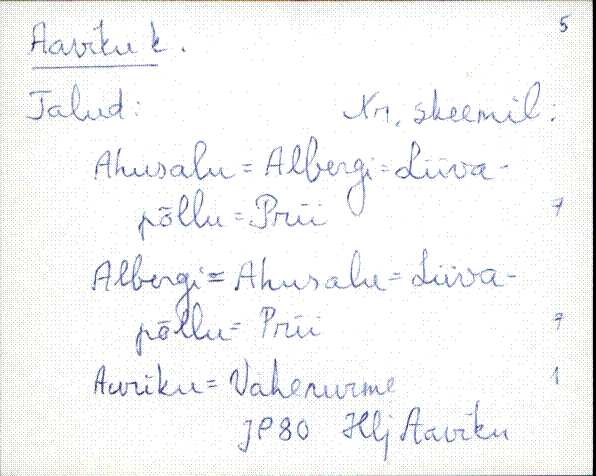 5
Aaviku k.
Talud: Nr. skeemil:
Ahusalu = Albergi = Liiva-
põllu = Prii 7
Albergi = Ahusalu = Liiva-
põllu = Prii 7
Auriku = Vahenurme 1
JP80 Hlj Aaviku